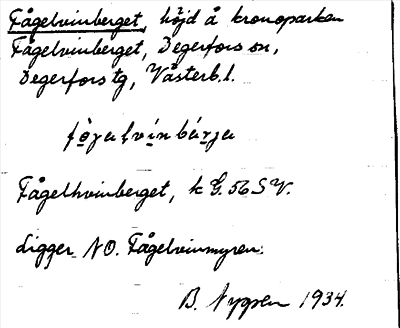 Fågelvinberget, höjd å kronoparken
Fågelvinberget, Degerfors sn,
Degerfors tg, Västerb. l.
Fågelhvinberget, k G. 56 S V.
Ligger NO. Fågelvinmyren.
B. Nygren 1934.